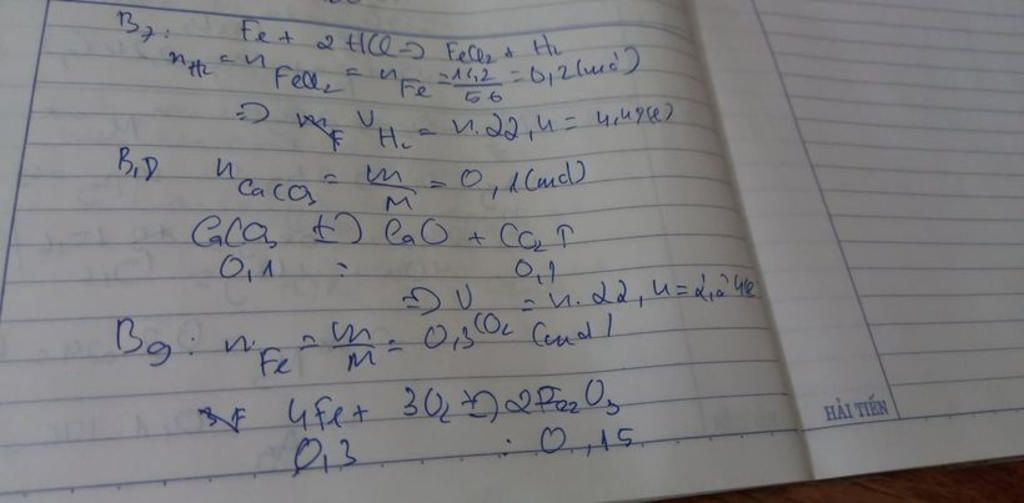 B7: Fe + 2HCl => FeCl2 + H2
nH2 = nFeCl2 = nFe = 11,2/56 = 0,2(mol)
=> VH2 = n.22,4 = 4,48(l)
B,D nCaCO3 = m/M = 0,1(mol)
CaCO3 t=> CaO + CO2↑
0,1 : 0,1
=> VCO2 = n.22,4 = 2,24l
B9: nFe = m/M = 0,3 (mol)
4Fe + 3O2 t=> 2Fe2O3
0,3 : 0,15
HẢI TIẾN